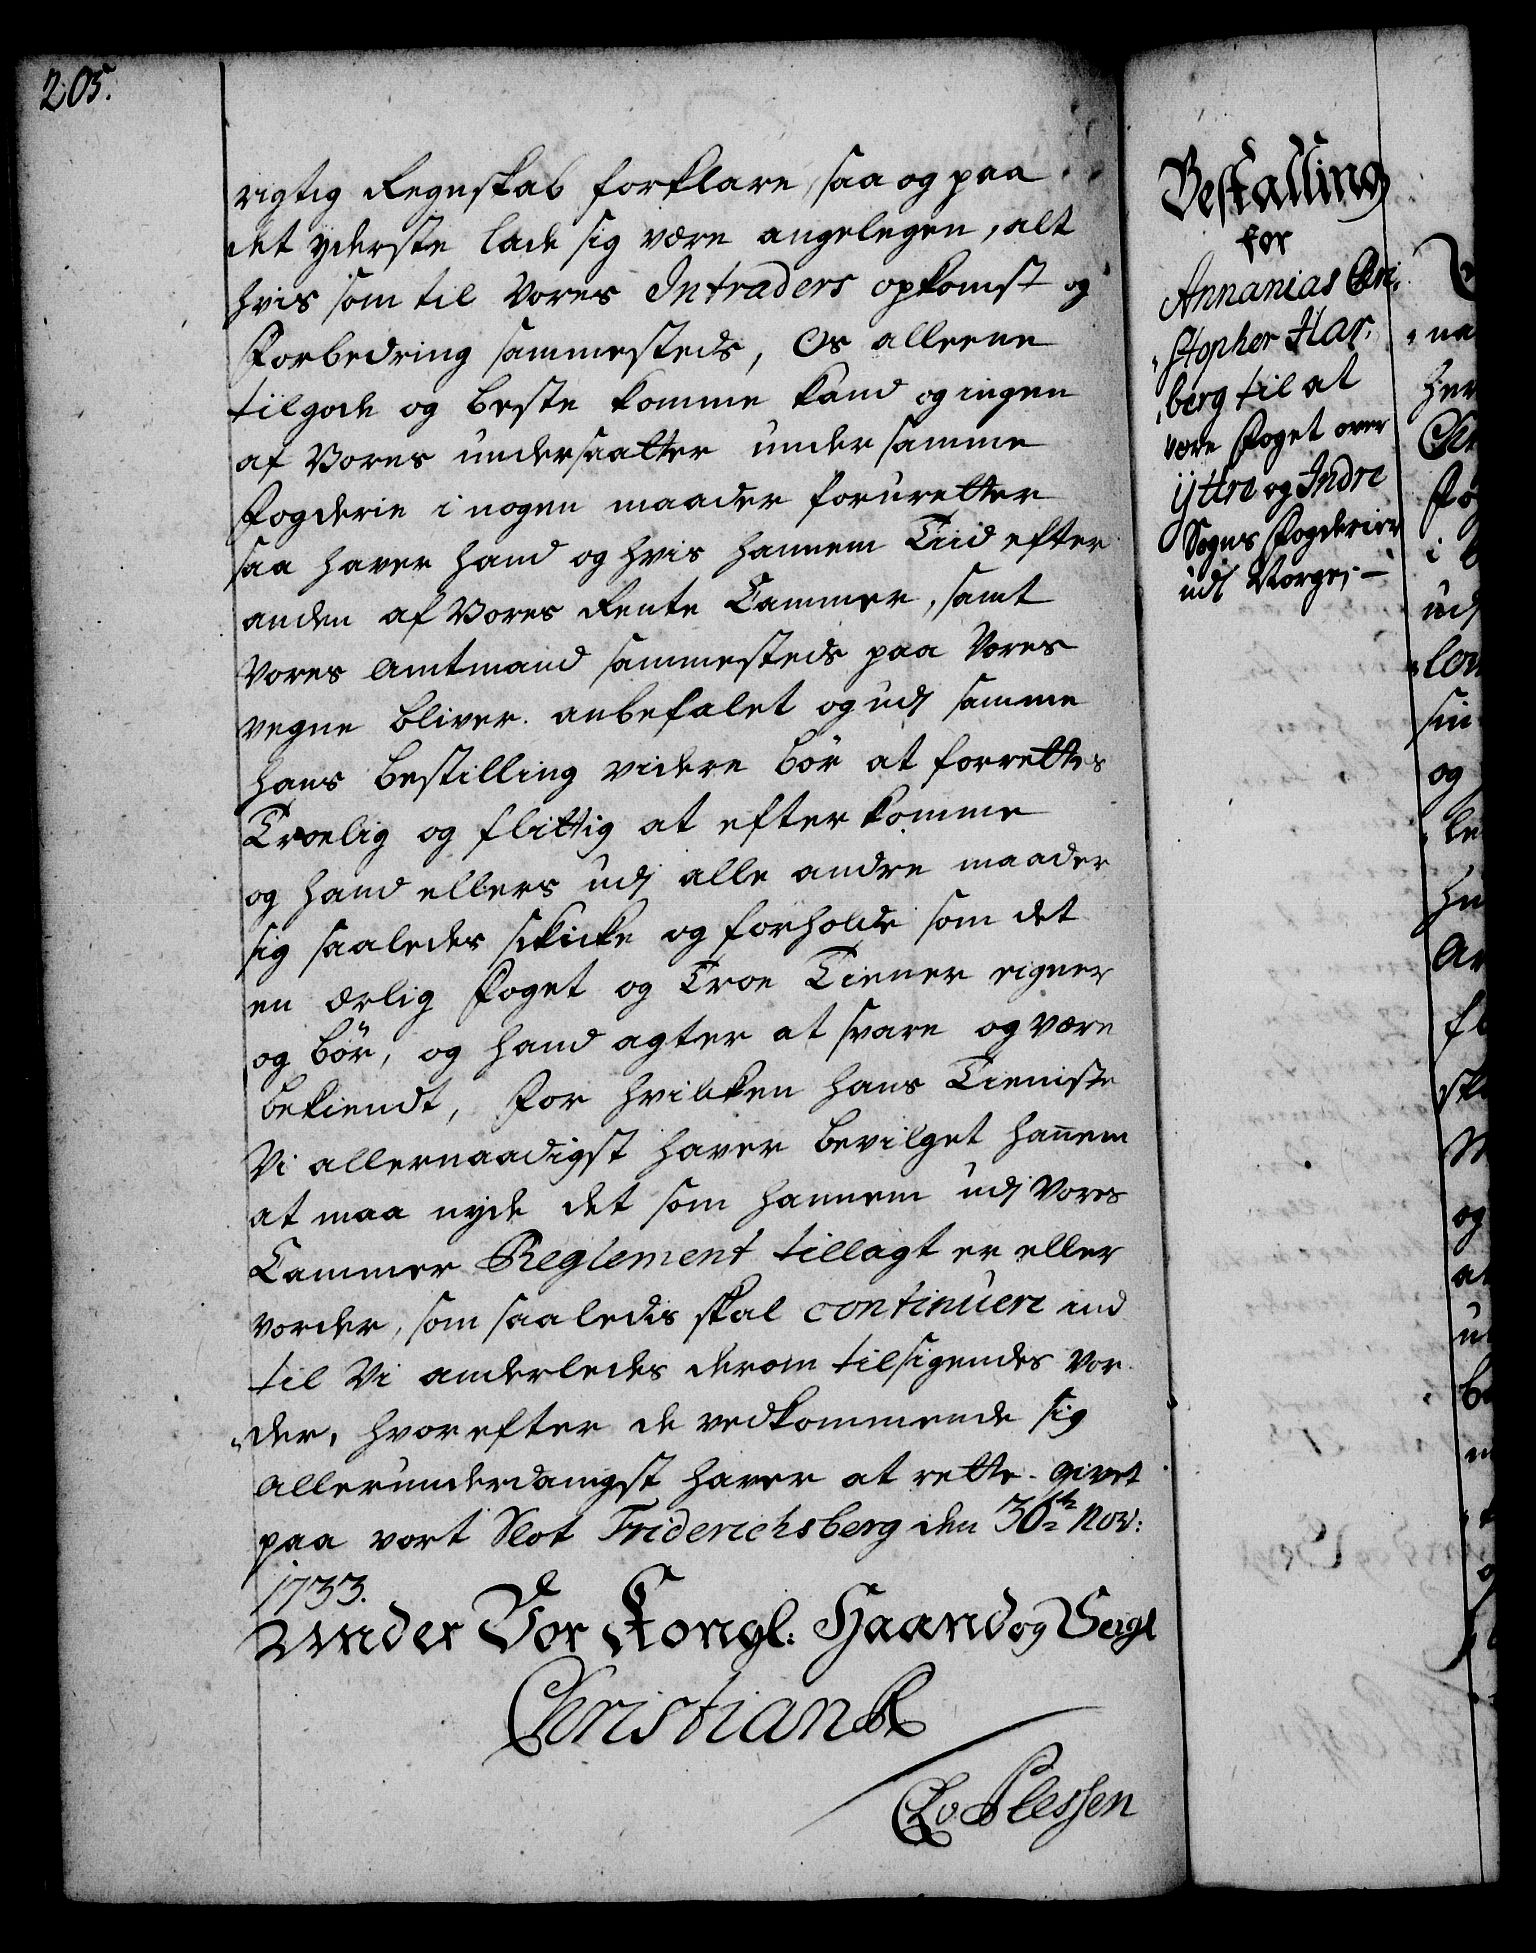 205.
rigtig Regnskab forklare, saa og paa
det yderste lade sig være angelegen, alt
hvis som til Vores Intraders opkomst og
Forbedring sammesteds, Os alleene
til gode og beste komme kand og ingen
af Vores undersaatter under samme
Fogderie i nogen maader foruretter
saa haver hand og hvis hannem Tiid efter
anden af Vores Rente Cammer, samt
Vores Amtmand sammesteds paa Vores
vegne bliver anbefalet og udj samme
hans bestilling videre bør at forrettes
Troelig og flittig at efterkomme
og hand ellers udj alle andre maader
sig saaledes skicke og forholde som det
en ærlig Foget og Troe Tiener eigner
og bør, og hand agter at svare og være
bekiendt, For hvilken hans Tieniste
Vi allernaadigst haver bevilget hannem
at maa nyde det som hannem udj Vores
Cammer Reglement tillagt er eller
vorder, som saaledis skal continuere ind
til Vi anderledes derom tilsigendes vor
der, hvorefter de vedkommende sig
allerunderdanigst haver at rette. Givet
paa vort Slot Friderichsberg den 30te Nov:
1733.
Under Vor Kongl: Haand og Seigl
Christian R
C v Plessen
Bestalling
for
Annanias Chri,
stopher Har,
berg til at
være Foget over
ÿttre og Indre
Sogns Fogderier
udj Norge,